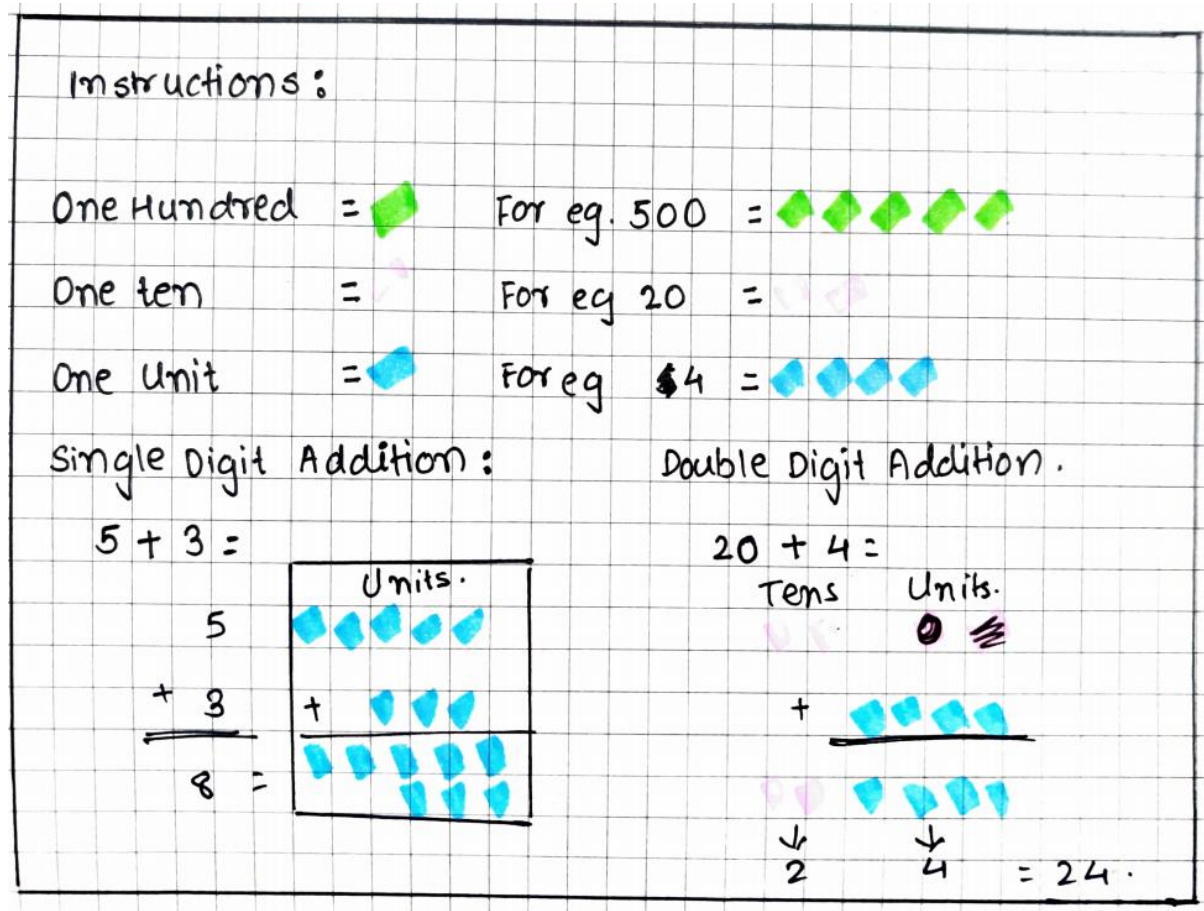 Instructions:
One Hundred = For eg. 500 =
One ten = For eg 20 =
One Unit = For eg 4 =
Single Digit Addition:
Double Digit Addition.
5 + 3 =
Units.
5
+ 3 +
8 =
20 + 4 =
Tens Units.
+
2 4 = 24.